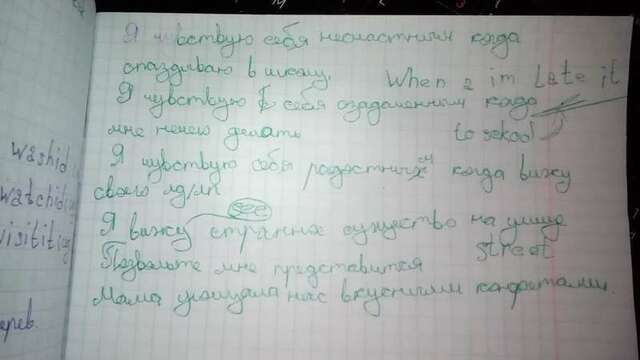 Я чувствую себя несчастным когда
опаздываю в школу. When I im Late it
Я чувствую себя озадаченным когда
мне нечего делать to sckool
Я чувствую себы радостным когда вижу
своего
see
Я вижу странное существо на улице
street
Позвольте мне представится
Мама угощала нас вкусными конфетами.
washid
watchid
visititing